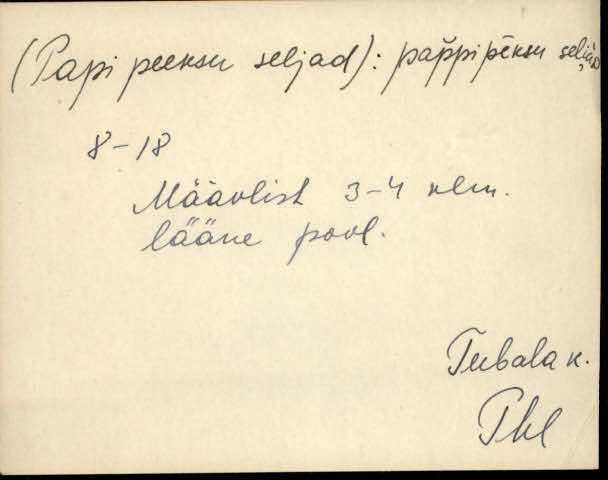 (Papi peeksu seljad): pap̆pi pēksu
8-18
Määvlist 3-4 klm.
lääne pool.
Tubala k.
Phl